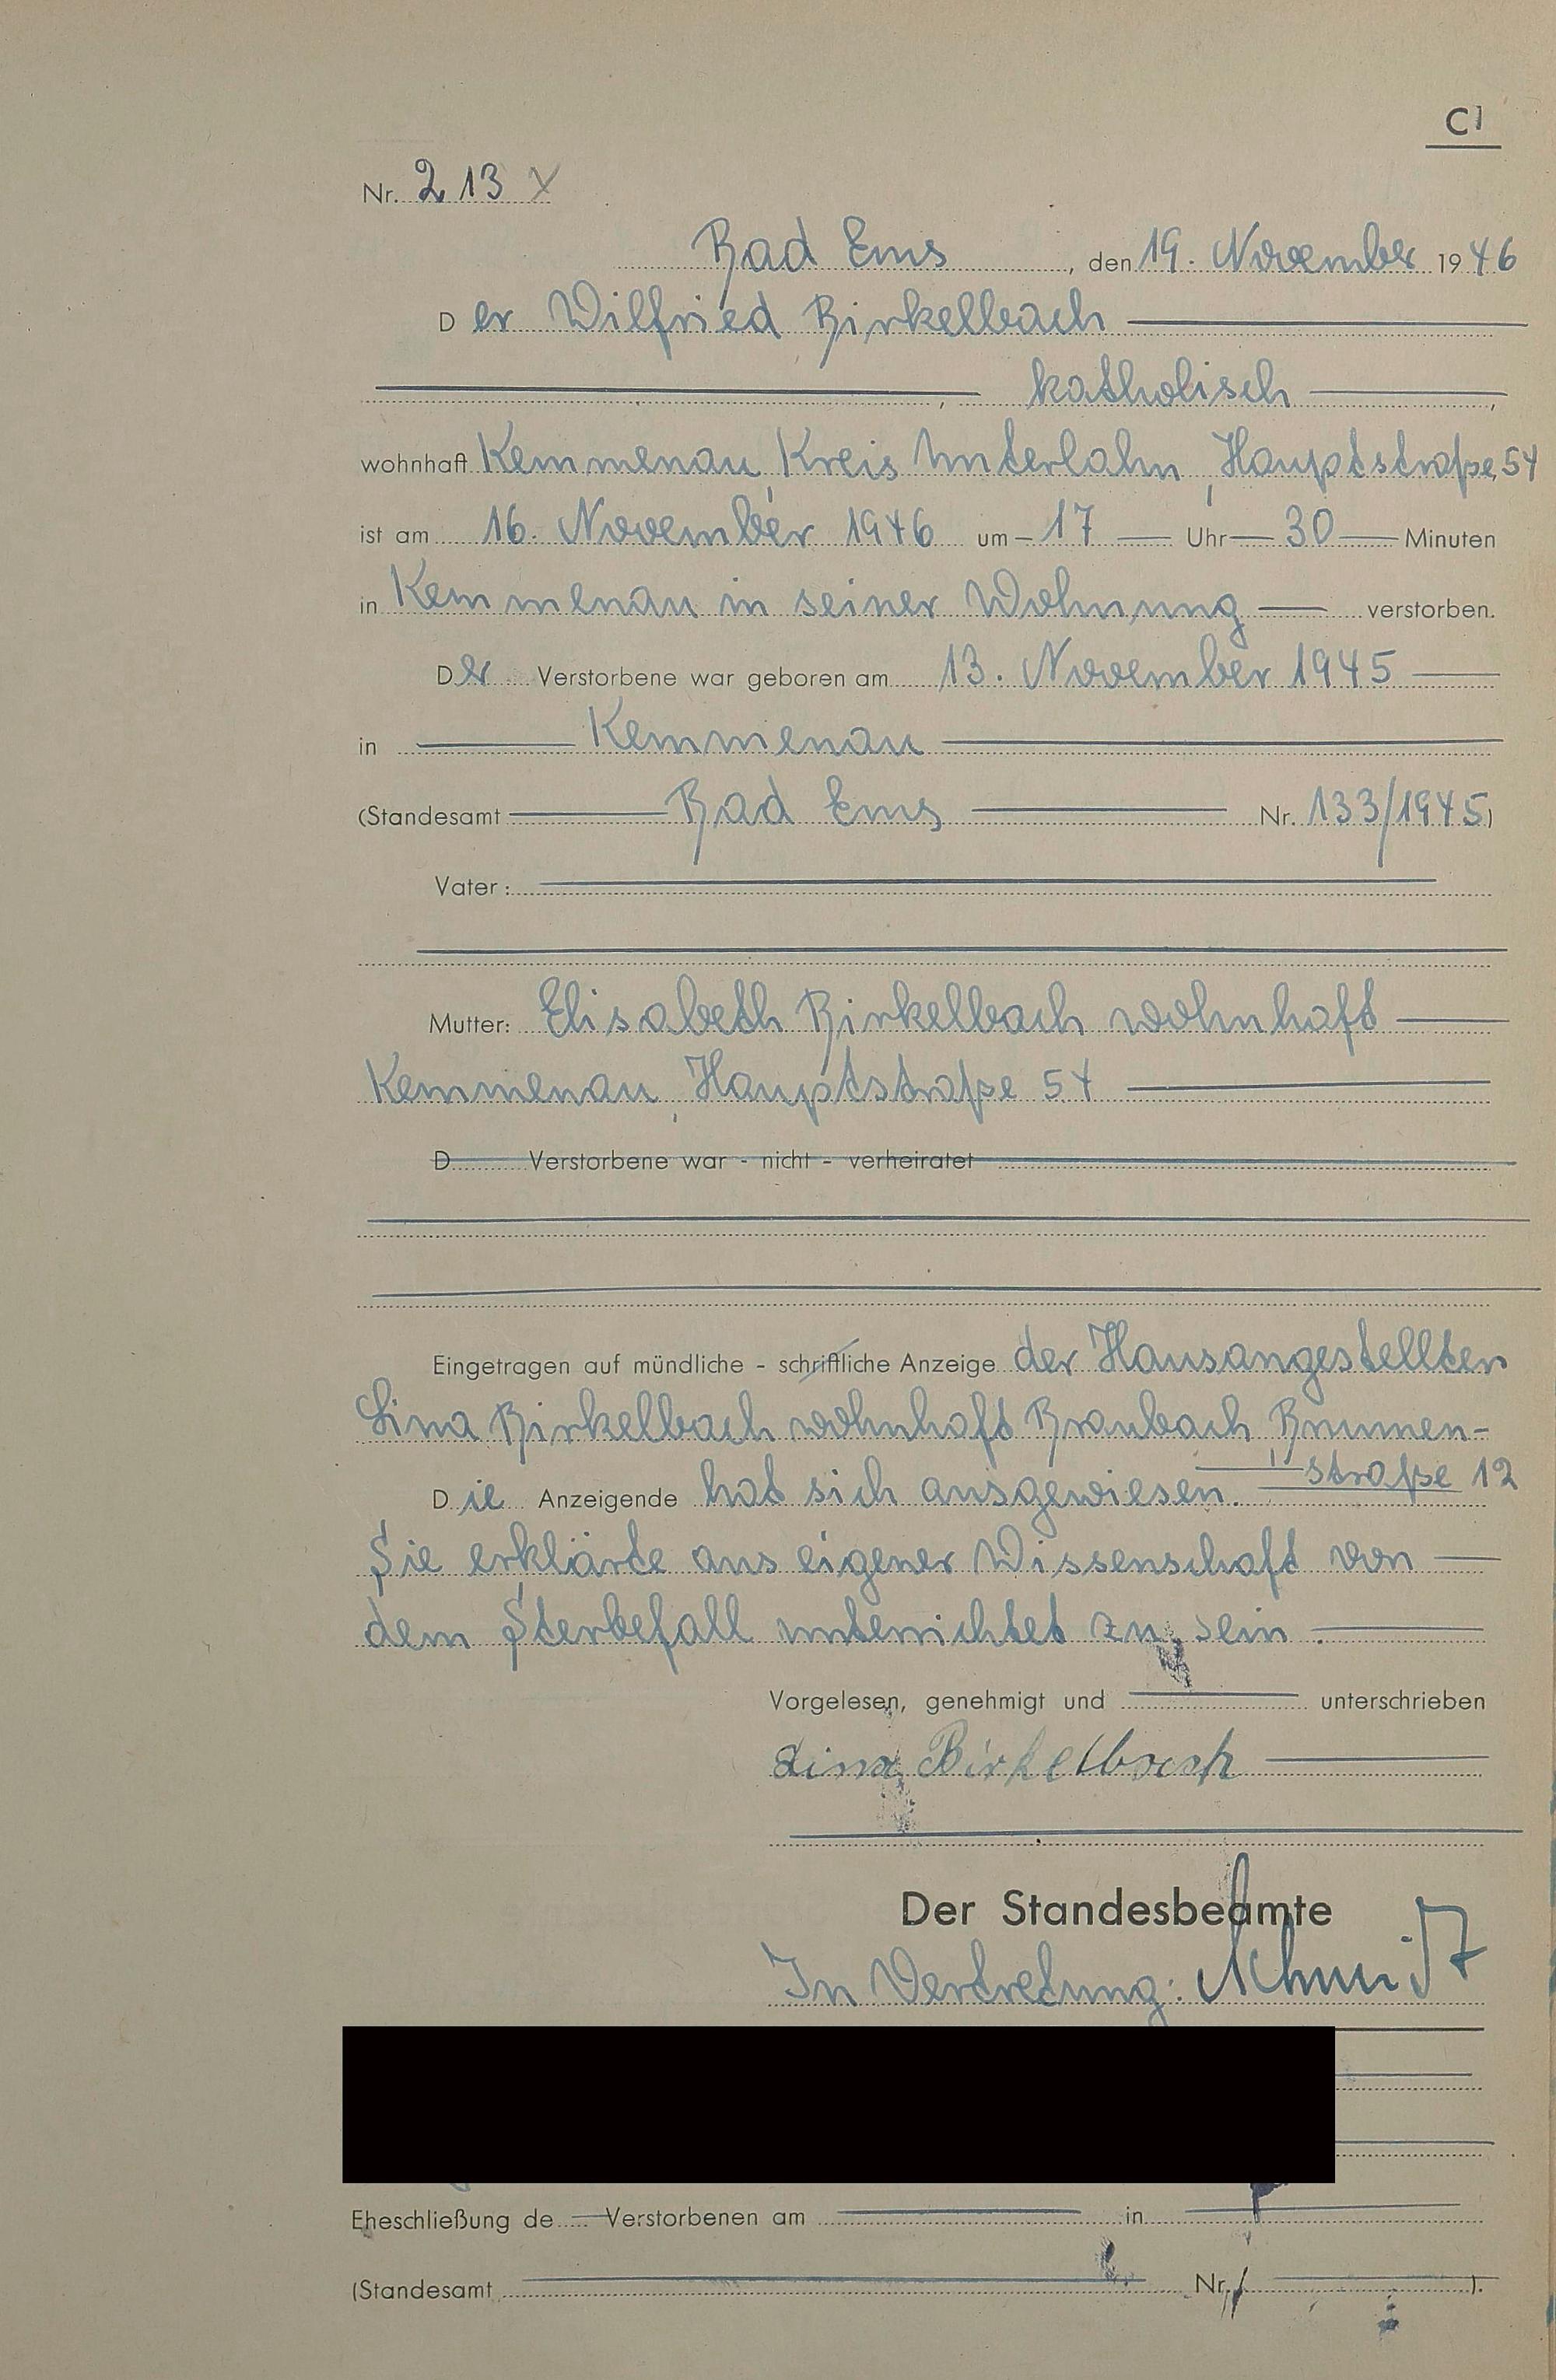 C1
Nr. 213 X
Bad Ems, den 19. November 1946
Der Wilfried Birkelbach
, katholisch,
wohnhaft Kemmenau, Kreis Unterlahn, Hauptstraße 54
ist am 16. November 1946 um 17 Uhr 30 Minuten
in Kemmenau in seiner Wohnung verstorben.
Der Verstorbene war geboren am 13. November 1945
in Kemmenau
(Standesamt Bad Ems Nr. 133/1945)
Vater:
Mutter: Elisabeth Birkelbach wohnhaft
Kemmenau, Hauptstraße 54
D Verstorbene war - nicht - verheiratet
Eingetragen auf mündliche - schriftliche Anzeige der Hausangestellten
Lina Birkelbach wohnhaft Braubach, Brunnen-
straße 12
Die Anzeigende hat sich ausgewiesen.
Sie erklärte aus eigener Wissenschaft von
dem Sterbefall unterrichtet zu sein.
Vorgelesen, genehmigt und unterschrieben
Lina Birkelbach
Der Standesbeamte
In Vertretung: Schmidt
Eheschließung de Verstorbenen am in
(Standesamt Nr. ).